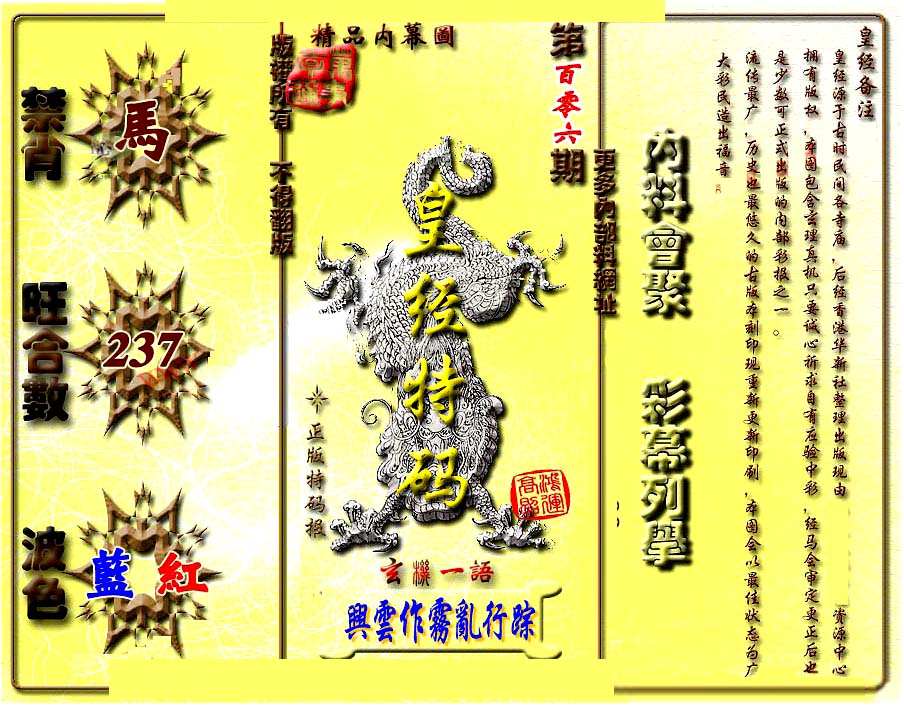 皇经备注
皇经源于古时民间各寺庙，后经香港华新社整理出版现由 资源中心
拥有版权，本图包含玄理真机只要诚心祈求自有应验中彩，经马会审定更正后也
是少数可正式出版的内部彩报之一。
流传最广，历史也最悠久的古版本刻印现重新更新印刷，本图会以最佳状态为广
大彩民造出福音
內料會聚
彩幕列舉
更多內部料網址
第百零六期
精品内幕圖
皇经特码
正版特码报
鴻運
高照
玄機一語
興雲作霧亂行踪
版權所有 不得翻版
禁肖
馬
旺合數
237
波色
藍 紅